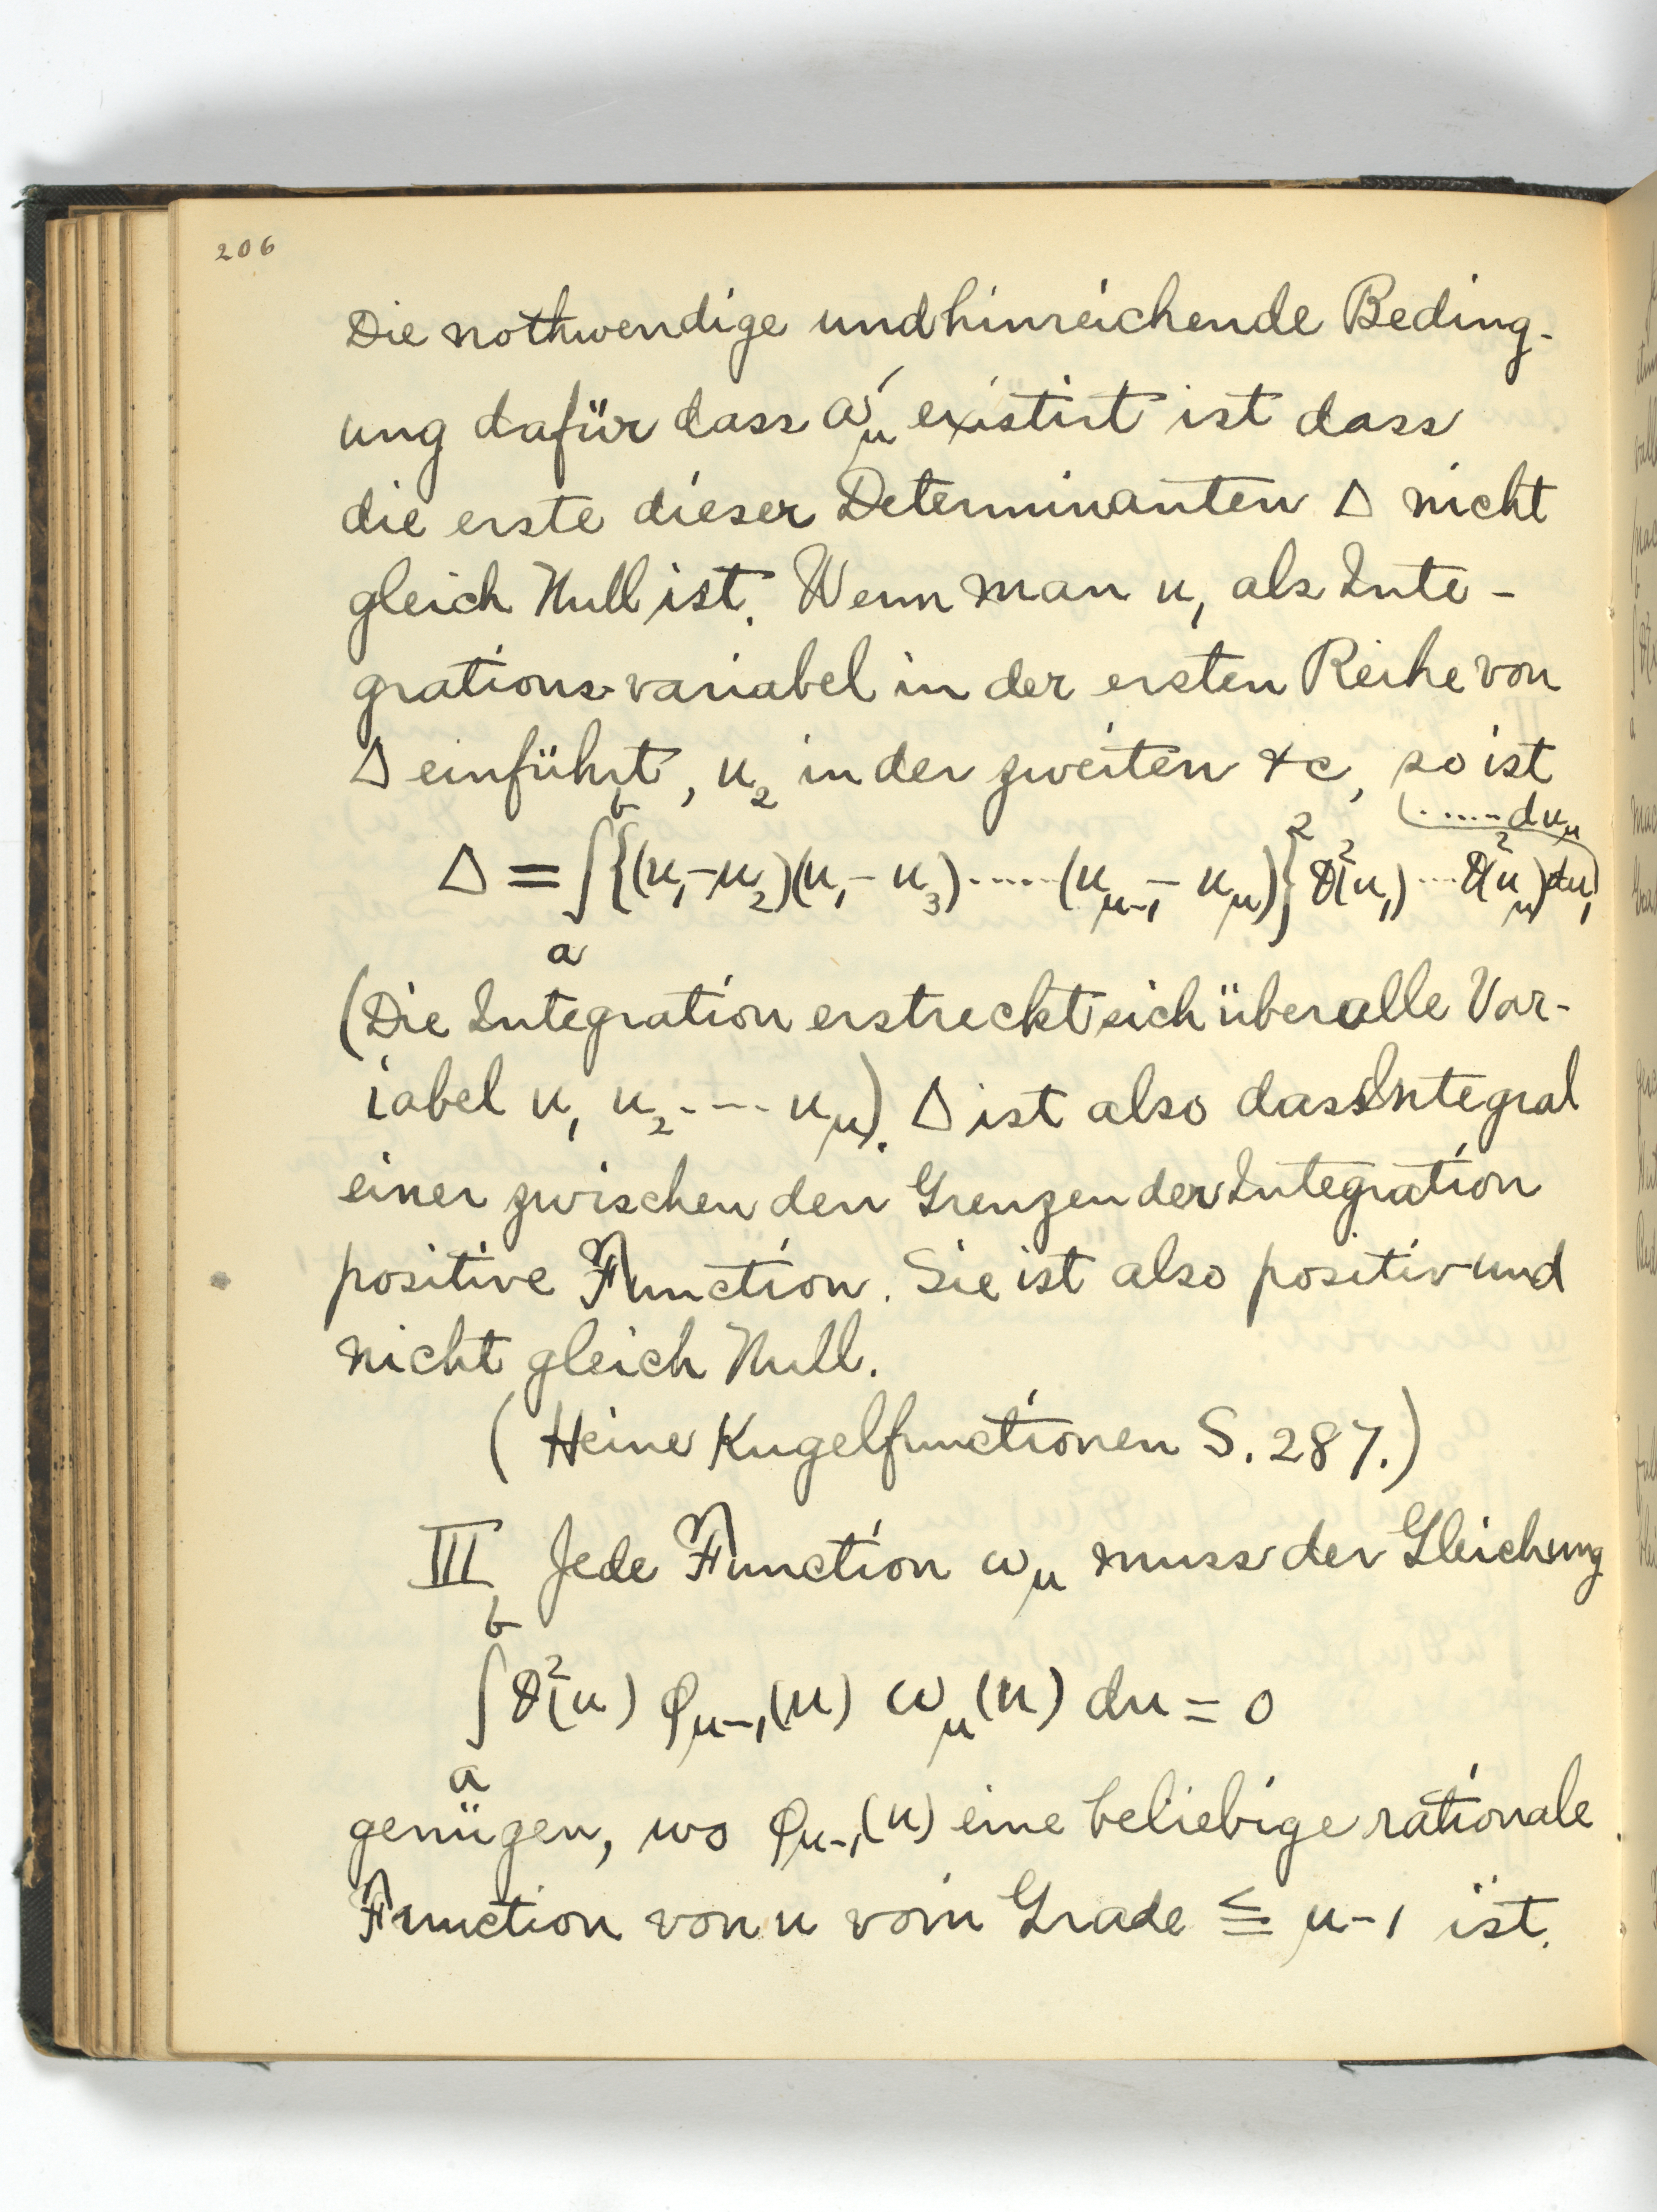 206
Die nothwendige und hinreichende Beding-
ung dafür dass ω'_μ existirt ist dass
die erste dieser Determinanten Δ nicht
gleich Null ist. Wenn man u₁ als Inte-
grations-variabel in der ersten Reihe von
Δ einführt, u₂ in der zweiten &c, so ist
Δ = ∫_a^b {(u₁-u₂)(u₁-u₃).....(u_{μ-1}-u_μ)}² ϑ²(u₁)...ϑ²(u_μ)du₁ .....du_μ
(Die Integration erstreckt sich über alle Var-
iabel u₁ u₂.... u_μ). Δ ist also dass Integral
einer zwischen den Grenzen der Integration
positive Function. Sie ist also positiv und
nicht gleich Null.
(Heine Kugelfunctionen S. 287.)
III Jede Function ω_μ muss der Gleichung
∫_a^b ϑ²(u) φ_{μ-1}(u) ω_μ(u) du = 0
genügen, wo φ_{μ-1}(u) eine beliebige rationale
Function von u vom Grade ≦ μ-1 ist.